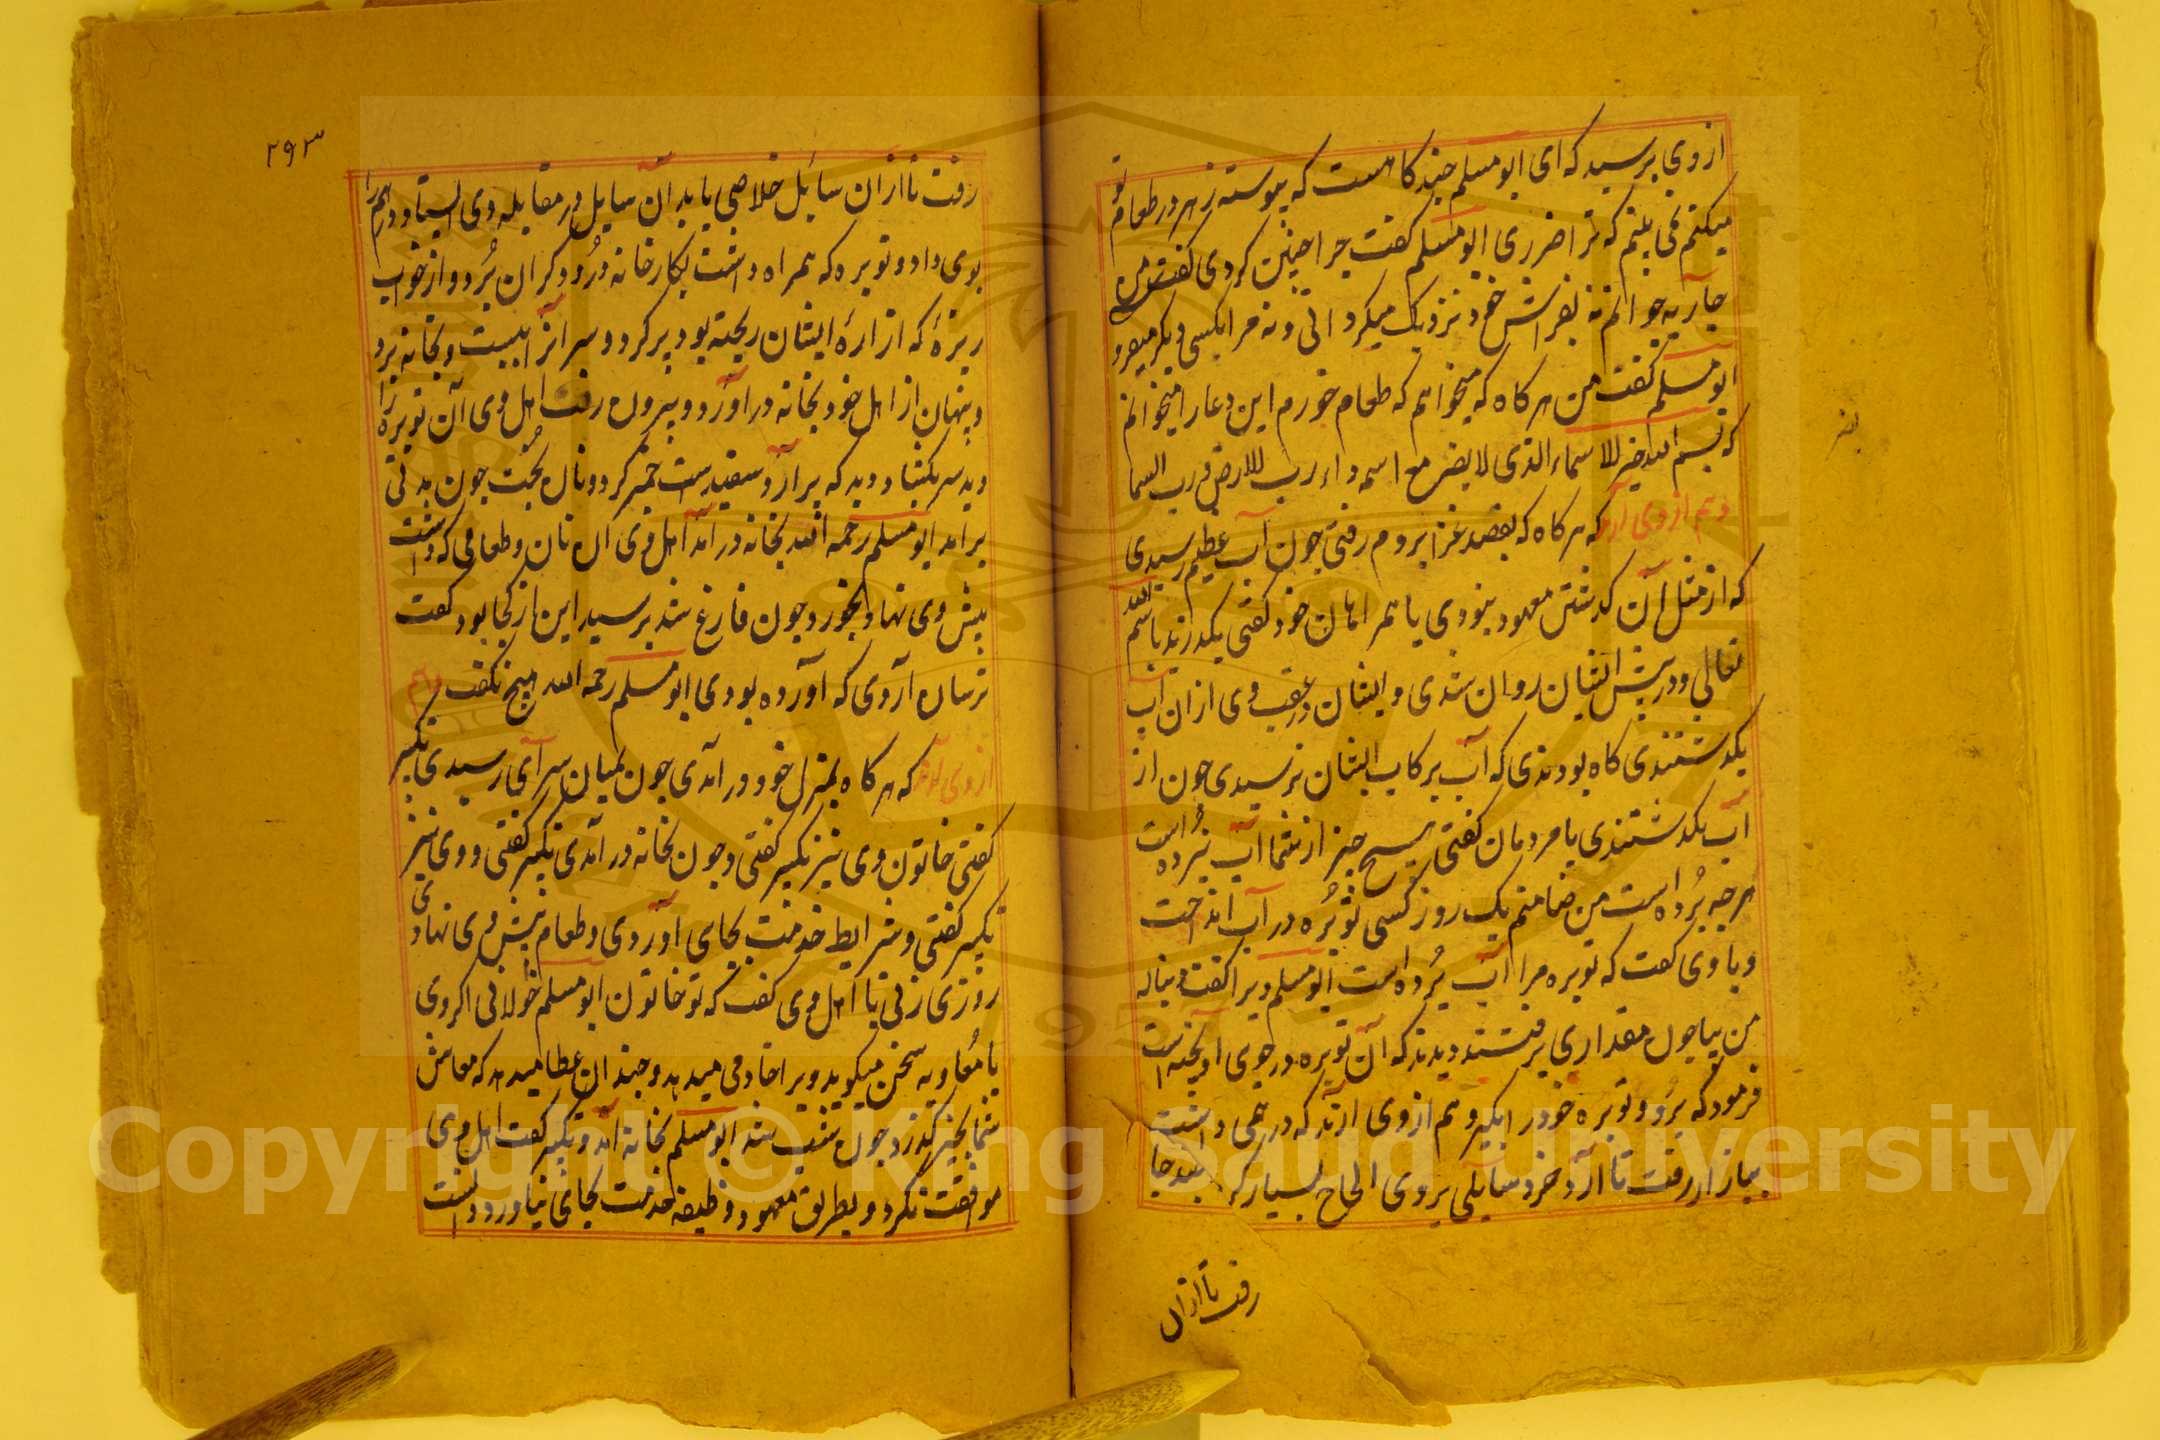 از وی پرسید که ای ابو مسلم چند کاهست که پیوسته زهر در طعام تو
میکنم نمی بینم که ترا ضرری ابو مسلم کفت چرا چنین کردی کفت من
جاریه جوانم نه بفراش خود نزدیک میکردانی و نه مرا بکسی دیکر میفرو
ابو مسلم کفت من هر کاه که میخواهم که طعام خورم این دعا را میخوانم
که بسم الله خیر الاسماء الذی لا یضر مع اسمه داء رب الارض و رب السما
و هم از وی آرند که هر کاه که بقصد غزا بروم رفتی چون آب عظیم رسیدی
که از مثل آن کدشتن معهود نبودی با همراهان خود کفتی بکذرند باسم الله
تعالی و در پیش ایشان روان شدی و ایشان در عقب وی از ان آب
بکدشتندی کاه بودندی که آب برکاب ایشان نرسیدی چون از
آب بکدشتندی با مردمان کفتی هیچ چیز از شما آب بُرده است
هر چه بُرده است من ضامنم یک روز کسی توبُره در آب انداخت
و با وی کفت که توبره مرا آب بُرده است ابو مسلم ویرا کفت دنباله
من بیا چون مقداری برفتند دیدند که آن توبره در چوبی آویخته است
فرمود که برو و توبره خود را بکیر و هم از وی ارند که درهمی داشت
ببازار رفت تا آرد خرد سایلی بر وی الحاح بسیار کرد بچند جا
رفت تا ازان
۲۹۳
رفت تا ازان سایل خلاصی یابد آن سایل در مقابله وی ایستاد درهم را
بوی داد و توبره که همراه داشت بکارخانه دُرودکران بُرد و از چوب
ریزهٔ که از ارهٔ ایشان ریخته بود پر کرد و سر آنرا ببست و بخانه برد
و پنهان از اهل خود بخانه در آورد و بیرون رفت اهل وی آن توبره را
دید سر بکشاد دید که پر آرد سفیدست خمیر کرد و نان بپُخت چون مدتی
برامد ابو مسلم رحمه الله بخانه در آمد اهل وی ان نان و طعامی که داشت
پیش وی نهاد بخورد چون فارغ شد پرسید این از کجا بود کفت
ترسان آردی که آورده بودی ابو مسلم رحمه الله هیچ نکفت و هم
از وی آرند که هر کاه بمنزل خود در آمدی چون بمیان سرای رسیدی تکبیر
کفتی خاتون وی نیز تکبیر کفتی و چون بخانه در آمدی تکبیر کفتی و وی نیز
تکبیر کفتی و شرایط خدمت بجای آوردی و طعام پیش وی نهادی
روزی زنی با اهل وی کفت که تو خاتون ابو مسلم خولانی اکر وی
با معاویه سخن میکوید ویرا خادمی میدهد و چندان عطا میدهد که معاش
شما بخیر کدزد چون شب شد ابو مسلم بخانه آمد و تکبیر کفت اهل وی
موافقت نکرد و بطریق معهود وظیفه خدمت بجای نیاورد دانست
Copyright © King Saud University
1957